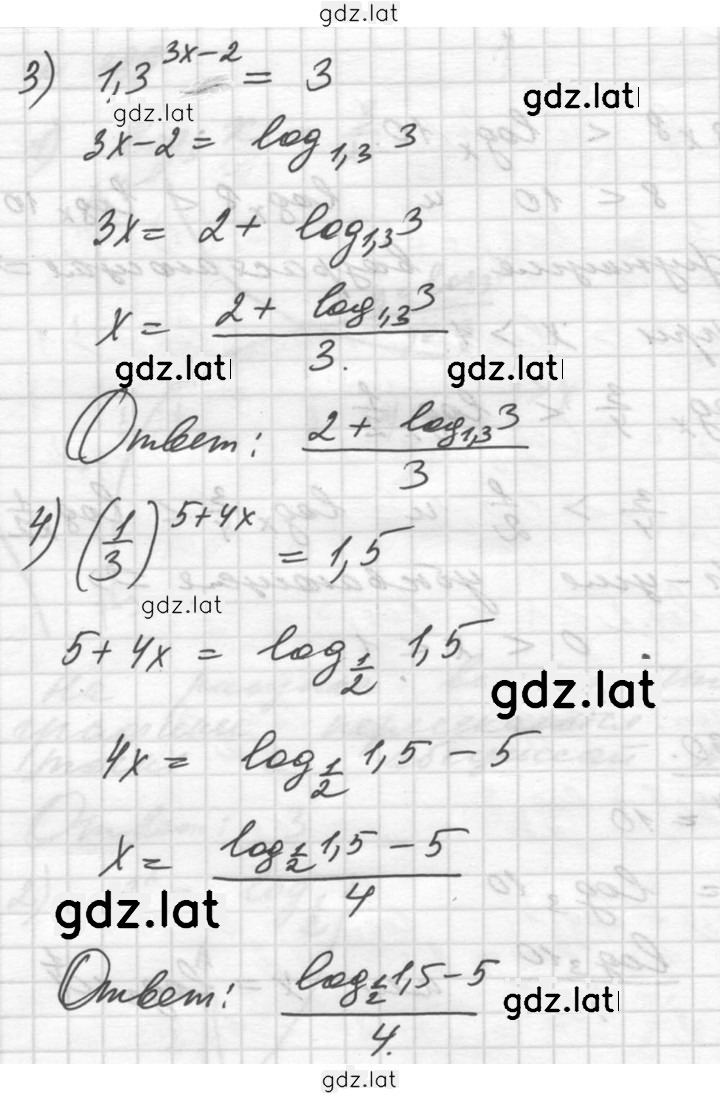 gdz.lat
3) 1,3^{3x-2} = 3
gdz.lat
gdz.lat
3x-2 = log_{1,3} 3
3x = 2 + log_{1,3} 3
x = \frac{2 + log_{1,3} 3}{3.}
gdz.lat
gdz.lat
Ответ: \frac{2 + log_{1,3} 3}{3}
4) (\frac{1}{3})^{5+4x} = 1,5
gdz.lat
5+4x = log_{\frac{1}{2}} 1,5
gdz.lat
4x = log_{\frac{1}{2}} 1,5 - 5
x = \frac{log_{\frac{1}{2}} 1,5 - 5}{4}
gdz.lat
Ответ: \frac{log_{\frac{1}{2}} 1,5 - 5}{4.}
gdz.lat
gdz.lat